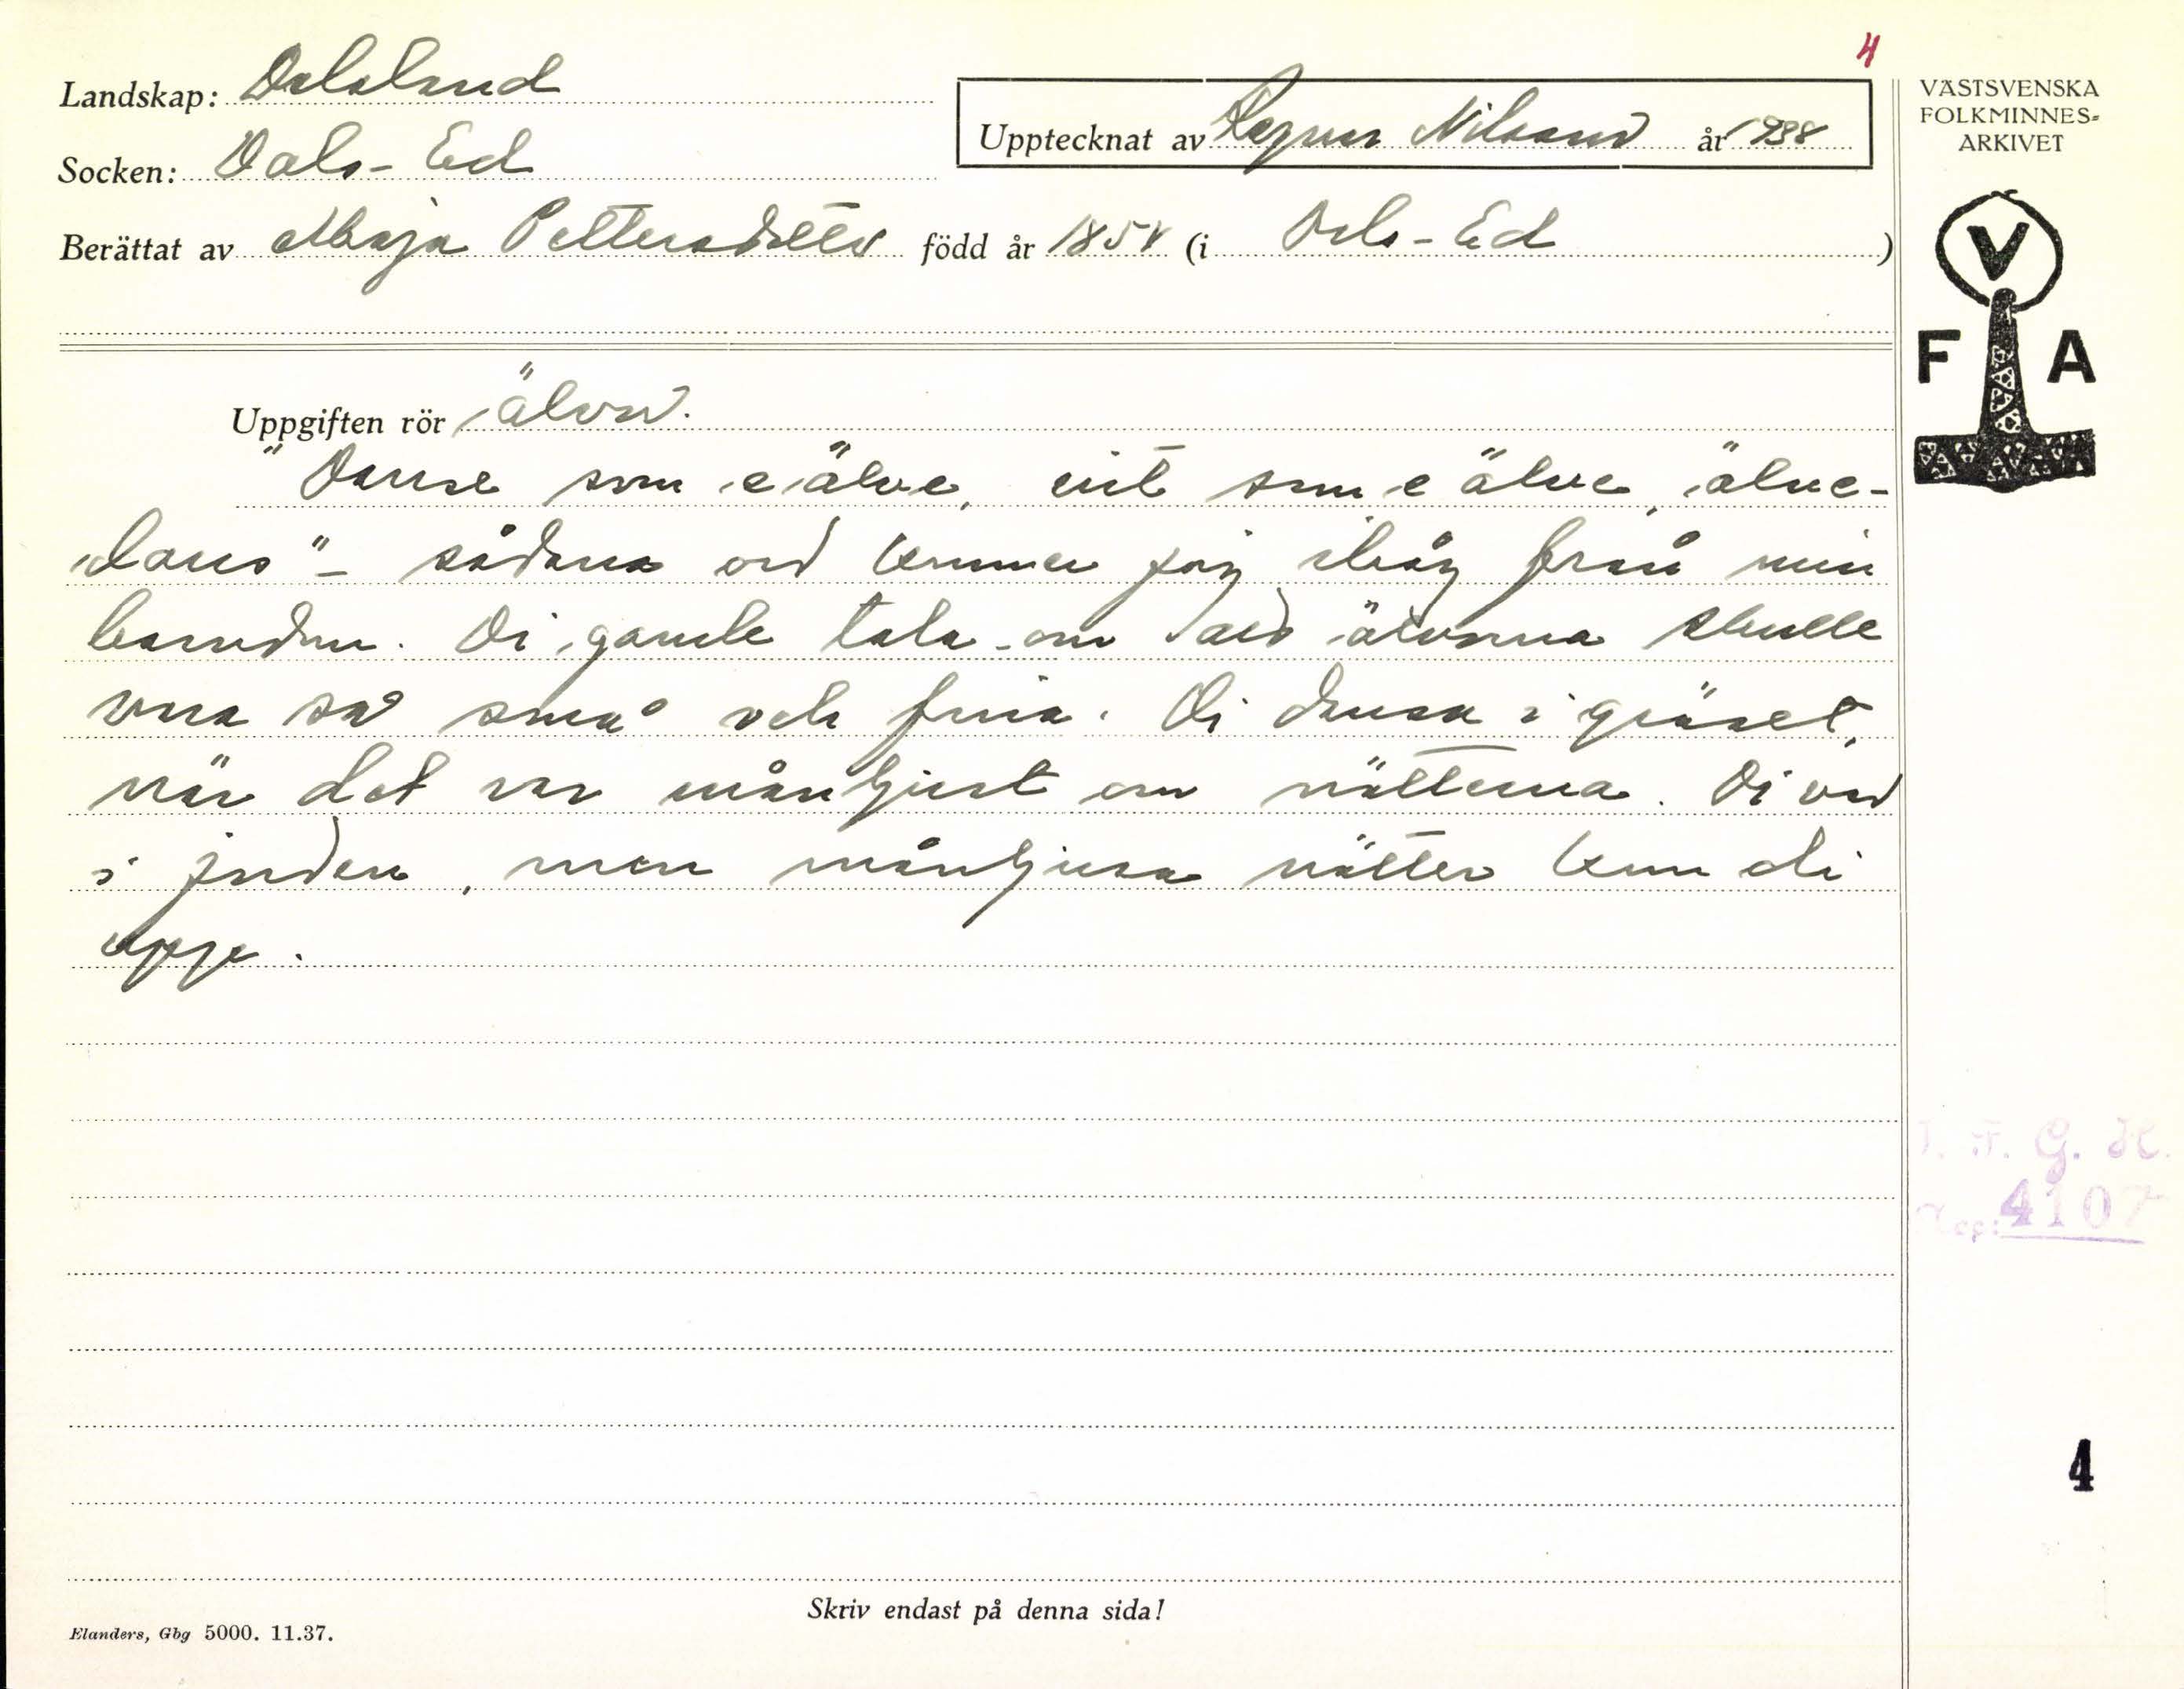 4
Landskap: Dalsland
Upptecknat av Ragnar Nilsson år 1938
VÄSTSVENSKA
FOLKMINNES=
ARKIVET
Socken: Dals-Ed
Berättat av Maja Pettersdotter född år 185 (i Dals-Ed )
V
F A
Uppgiften rör älvor.
"Danse som e älve, vit som e älve, älve-
dans" - sådana ord kommer jag ihåg från min
barndom. Di gamle tala om att älvorna skulle
vara så små och fina. Di dansa i gräset,
när det var månljust om nätterna. Di var
i jorden, men månljusa nätter kom di
oppe.
G.
4107
4
Skriv endast på denna sida!
Elanders, Gbg 5000. 11.37.